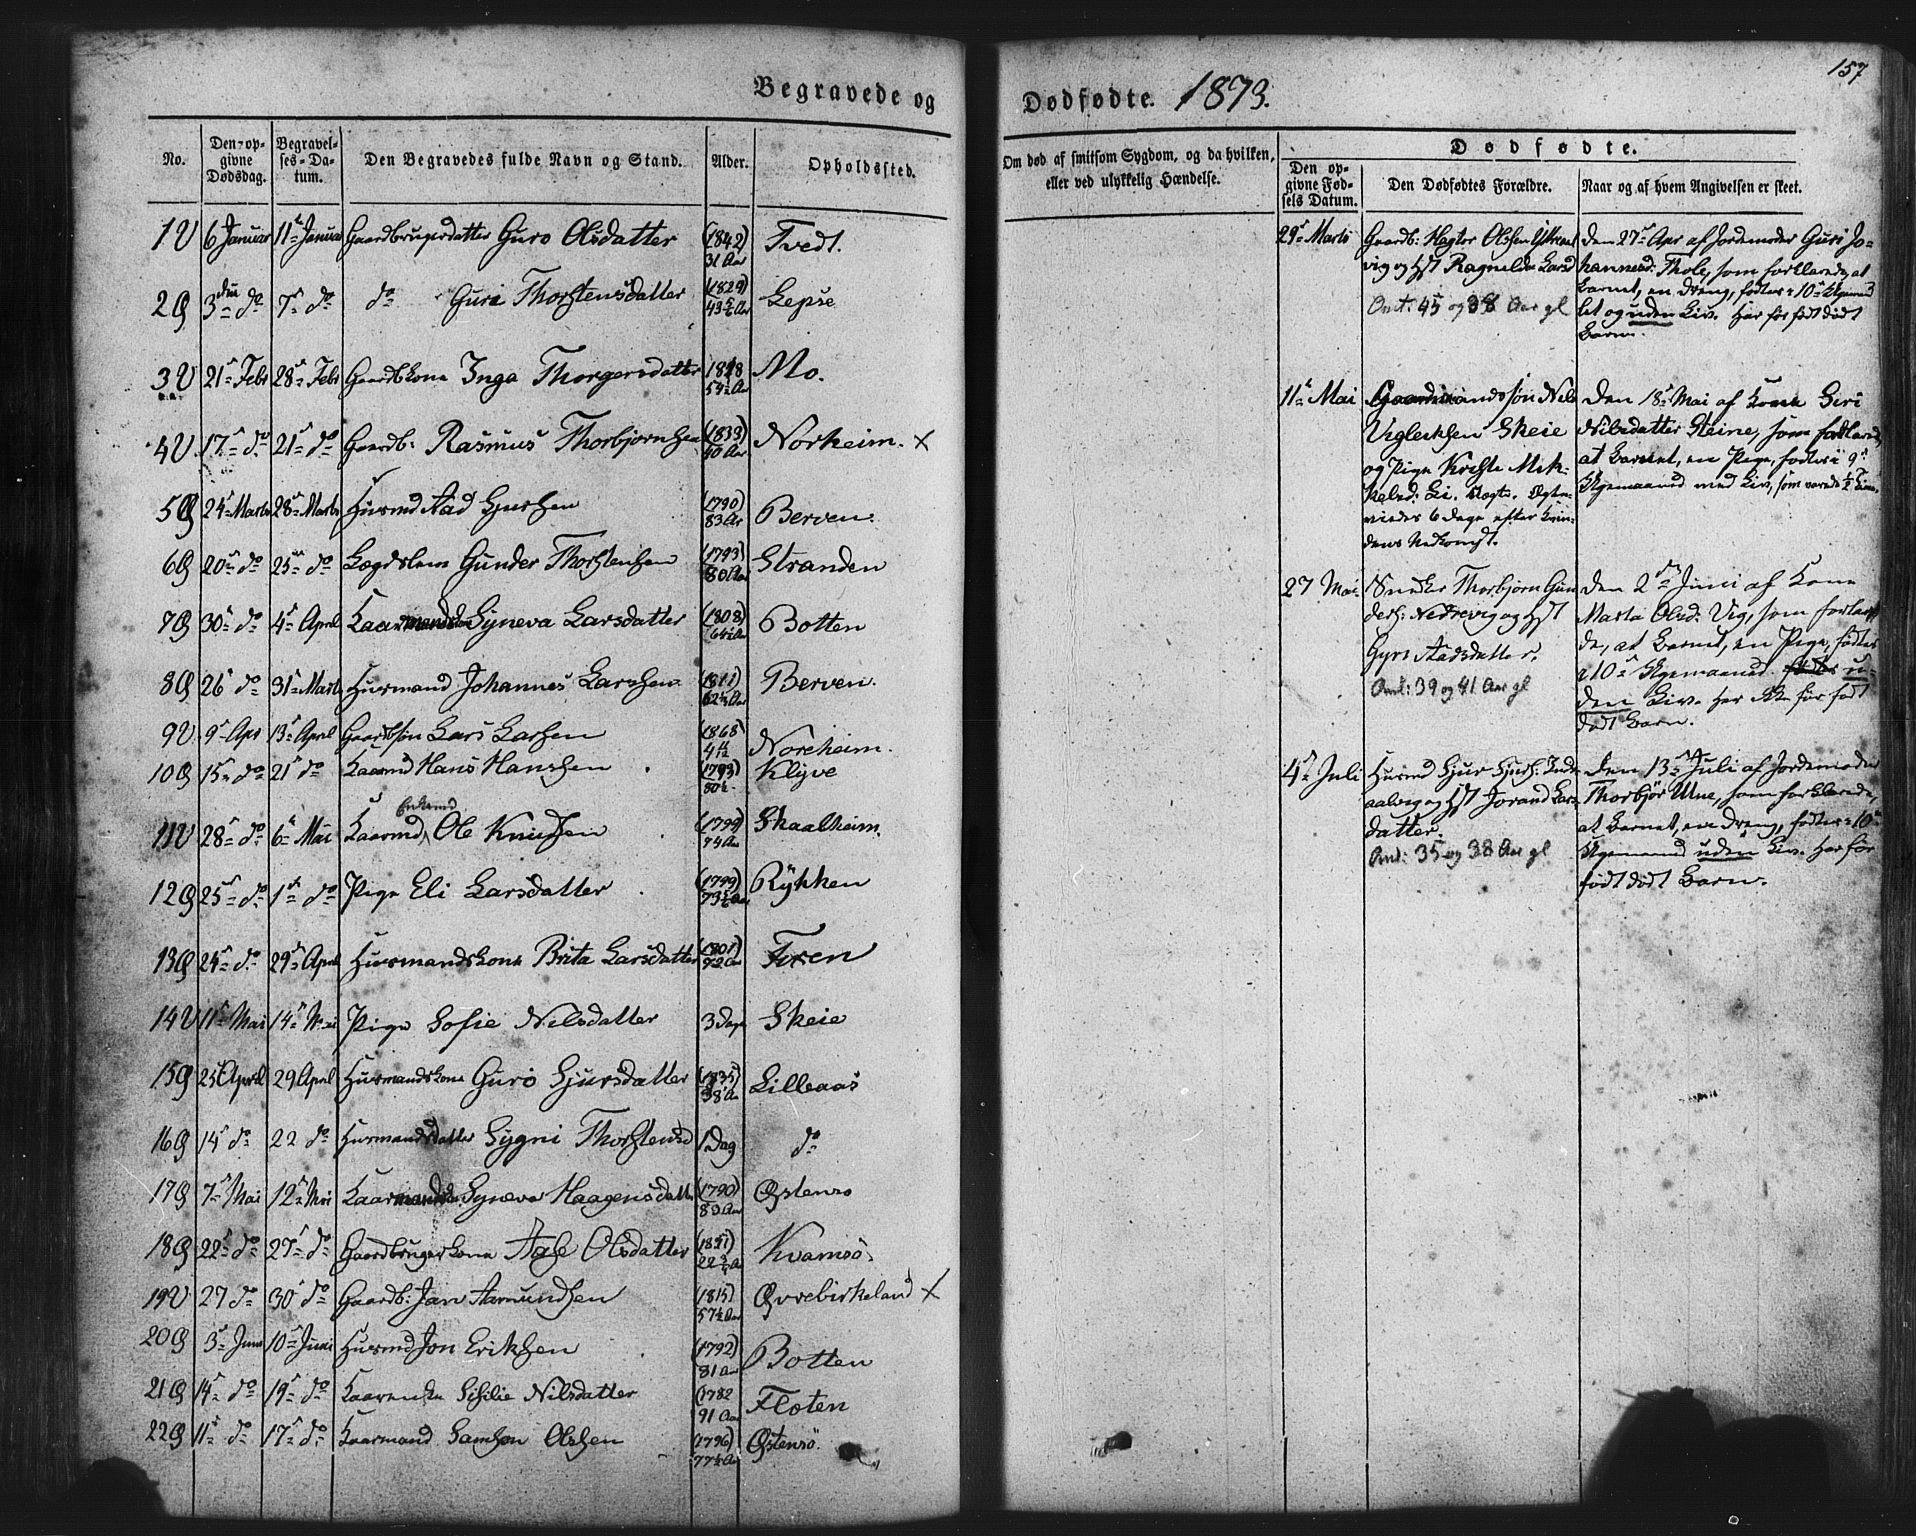 157
Begravede og Dødfødte. 1873.
No. Den opgivne Dødsdag. Begravelses-Datum. Den Begravedes fulde Navn og Stand. Alder. Opholdssted.
1 V 6 Januar 11te Januar Gaardbrugerdatter Guro Olsdatter (1842) 31 Aar Tvedt.
2 Ø 3die do 7de do do Guri Thorstensdatter (1829) Lepse
3 V 21 Febr 28 Febr Gaardbkone Inga Thorgersdatter 1818 54½ Aar Mo.
4 V 17 do 21 do Gaardb: Rasmus Thorbjørnsen (1833) 40 Aar Norheim. X
5 Ø 24 Marts 28 Marts Husmd Aad Sjursen (1790) 83 Aar Berven.
6 Ø 20 do 25 do Lægdslem Gunder Thorstensen (1793) 80 Aar Stranden
7 Ø 30 do 4 April Kaarmandskone Syneva Larsdatter (1808) Botten
8 Ø 26 do 31 Marts Husmand Johannes Larsen (1811) Berven.
9 V 9 Apr 13 April Gaardbsøn Lars Larsen (1868) Noreheim.
10 Ø 15 do 21 do Kaarmd Hans Hansen (1793) 80½ Klyve
11 V 28 do 6 Mai Kaarmd Enkemd Ole Knudsen (1799) 74 Aar Skaalheim.
12 Ø 25 do 1st do Pige Eli Larsdatter (1799) Rykken
13 Ø 24 do 29 April Husmandskone Brita Larsdatter (1801) 72 Aar
14 V 11 Mai 14 Mai Pige Sofie Nilsdatter 3 Dage Skeie
15 Ø 25 April 29 April Husmandskone Guro Sjursdatter (1835) 38 Aar Lilleaas
16 Ø 14 do 22 do Husmandsdatter Sygni Thorstensd 1 Dag do
17 Ø 7 Mai 12 Mai Kaarmandsk Syneva Haagensdatter (1790) 83 Aar Østensø
18 Ø 22 do 27 do Gaardbrugerkone Aase Olsdatter (1851) Kvamsø.
19 V 27 do 30 do Gaardb: Jan Aamundsen (1815) 57½ Aar Øvrebirkeland X
20 Ø 3 Juni 10 Juni Husmd Jon Eriksen (1792) 81 Aar Botten
21 Ø 14 do 19 do Kaarenke Sisilie Nilsdatter (1782 91 Aar Floten
22 Ø 11 do 17 do Kaarmand Samson Olsen (1796) 77½ Aar Østensø.
Om død af smitsom Sygdom, og da hvilken,
eller ved ulykkelig Hændelse.
Dødfødte.
Den opgivne Fødsels Datum. Den Dødfødtes Forældre. Naar og af hvem Angivelsen er skeet.
29 Marts Gaardb: Hagtor Olsen
vig og Hst Ragnilda Larsd
Omt: 45 og 38 Aar gl
Den 27 Apr af Jordemoder Guri Jo-
hannesd: Thole, som forklarede, at
Barnet, en Dreng, fødtes i 10
let og uden Liv. Har før født dødt
Barn.
11te Mai Gaardmandssøn Nils
Vigleiksen Skeie
og Pige Kristi Mik-
kelsd: Li. Ægte. Ægte-
viedes 6 Dage efter Kvin-
dens Nedkomst.
Den 18 Mai af Kone Siri
Nilsdatter Steine, som forklarede,
at Barnet, en Pige, fødtes i 9
Ugemaaned med Liv, som varede ½ Time.
27 Mai Thorbjørn Gun-
ders: Nedrevig og Hst
Gyri Aadsdatter.
Omt: 39 og 41 Aar gl
Den 2den Juni af Kone
Marta Olsd: Vig, som forklare-
de, at Barnet, en Pige, fødtes
i 10 Ugemaaned fødtes u-
den Liv. Har ikke før født
dødt Barn.
4 Juli Husmd Sjur Sjurs: Inde
aalvig og Hst Jorand Lars-
datter.
Omt: 35 og 38 Aar gl
Den 13 Juli af Jordemoder
Thorbjør Utne, som forklarede,
at Barnet, en Dreng, fødtes i 10
Ugemaaned uden Liv. Har før
født dødt Barn.